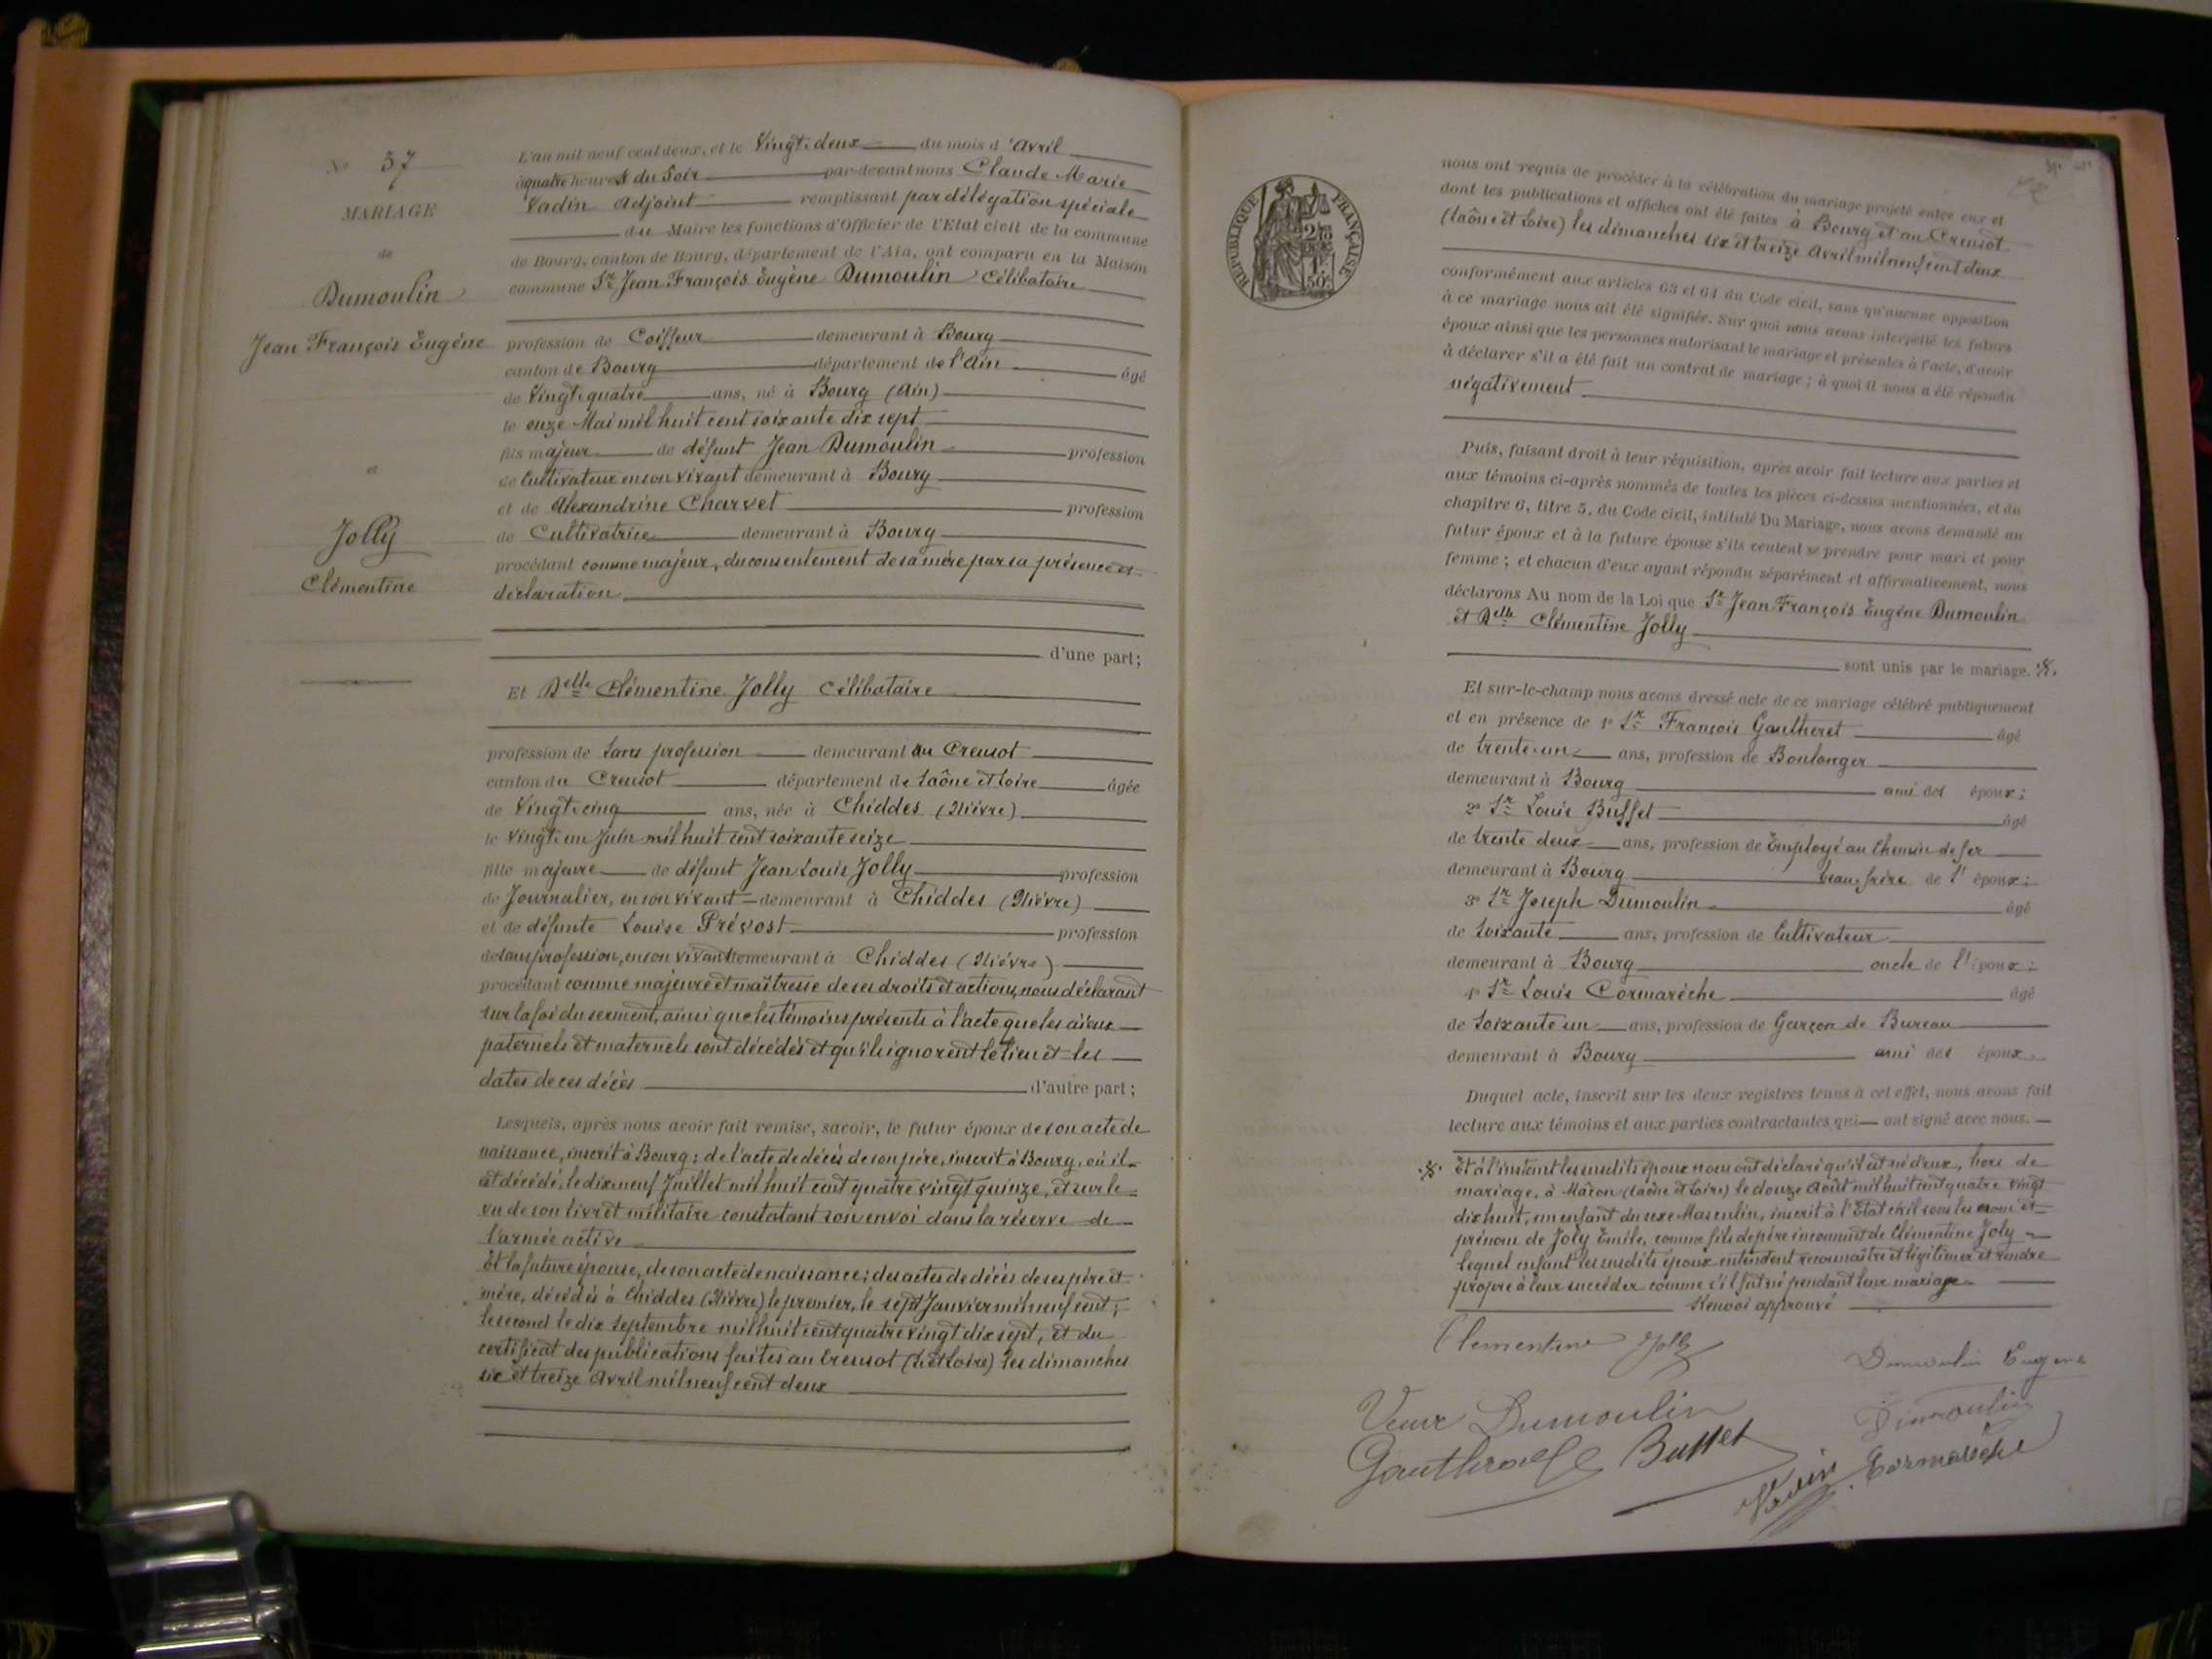 No 37
MARIAGE
de
Dumoulin
Jean François Eugène
et
Jolly
Clémentine
L'an mil neuf cent deux, et le Vingt-deux du mois d'Avril
à quatre heures du Soir par-devant nous Claude Marie
Vadin Adjoint remplissant par délégation spéciale
du Maire les fonctions d'Officier de l'Etat civil de la commune
de Bourg, canton de Bourg, département de l'Ain, ont comparu en la Maison
commune Sr Jean François Eugène Dumoulin Célibataire
profession de Coiffeur demeurant à Bourg
canton de Bourg département de l'Ain âgé
de Vingt-quatre ans, né à Bourg (Ain)
le onze Mai mil huit cent soixante dix sept
fils majeur de défunt Jean Dumoulin profession
de Cultivateur en son vivant demeurant à Bourg
et de Alexandrine Charvet profession
de Cultivatrice demeurant à Bourg
procédant comme majeur, du consentement de sa mère par sa présence et
déclaration
d'une part;
Et Delle Clémentine Jolly Célibataire
profession de Sans profession demeurant au Creusot
canton du Creusot département de Saône et Loire âgée
de Vingt-cinq ans, née à Chiddes (Nièvre)
le Vingt-un Juin mil huit cent soixante seize
fille majeure de défunt Jean Louis Jolly profession
de Journalier, en son vivant demeurant à Chiddes (Nièvre)
et de défunte Louise Prévost profession
de sans profession, en son vivant demeurant à Chiddes (Nièvre)
procédant comme majeure et maîtresse de ses droits et actions, nous déclarant
sur la foi du serment, ainsi que les témoins présents à l'acte que les aïeux
paternels et maternels sont décédés et qu'ils ignorent le lieu et les
dates de ces décès d'autre part;
Lesquels, après nous avoir fait remise, savoir, le futur époux de son acte de
naissance, inscrit à Bourg; de l'acte de décès de son père, inscrit à Bourg, où il
est décédé, le dix-neuf Juillet mil huit cent quatre vingt quinze, et sur le
vu de son livret militaire constatant son envoi dans la réserve de
l'armée active
Et la future épouse, de son acte de naissance; des actes de décès de ses père et
mère, décédés à Chiddes (Nièvre) le premier, le sept Janvier mil neuf cent;
le second le dix Septembre mil huit cent quatre vingt dix sept, et du
certificat des publications faites au Creusot (S. et Loire) les dimanches
six et treize Avril mil neuf cent deux
RÉPUBLIQUE FRANÇAISE
nous ont requis de procéder à la célébration du mariage projeté entre eux et
dont les publications et affiches ont été faites à Bourg et au Creusot
(Saône et Loire) les dimanches six et treize Avril mil neuf cent deux
conformément aux articles 63 et 64 du Code civil, sans qu'aucune opposition
à ce mariage nous ait été signifiée. Sur quoi nous avons interpellé les futurs
époux ainsi que les personnes autorisant le mariage et présentes à l'acte, d'avoir
à déclarer s'il a été fait un contrat de mariage; à quoi il nous a été répondu
négativement
Puis, faisant droit à leur réquisition, après avoir fait lecture aux parties et
aux témoins ci-après nommés de toutes les pièces ci-dessus mentionnées, et du
chapitre 6, titre 5, du Code civil, intitulé Du Mariage, nous avons demandé au
futur époux et à la future épouse s'ils veulent se prendre pour mari et pour
femme; et chacun d'eux ayant répondu séparément et affirmativement, nous
déclarons Au nom de la Loi que Sr Jean François Eugène Dumoulin
et Delle Clémentine Jolly
sont unis par le mariage.
Et sur-le-champ nous avons dressé acte de ce mariage célébré publiquement
et en présence de 1° Sr François Gautheret âgé
de trente-un ans, profession de Boulanger
demeurant à Bourg ami des époux;
2° Sr Louis Buffet âgé
de trente deux ans, profession de Employé au Chemin de fer
demeurant à Bourg beau-frère de l'époux;
3° Sr Joseph Dumoulin âgé
de Soixante ans, profession de Cultivateur
demeurant à Bourg oncle de l'époux;
4° Sr Louis Cormarèche âgé
de Soixante un ans, profession de Garçon de Bureau
demeurant à Bourg ami des époux.
Duquel acte, inscrit sur les deux registres tenus à cet effet, nous avons fait
lecture aux témoins et aux parties contractantes qui ont signé avec nous.
Et à l'instant les susdits époux nous ont déclaré qu'il est né d'eux, hors de
mariage, à Mâcon (Saône et Loire) le douze Août mil huit cent quatre vingt
dix huit, un enfant du sexe Masculin, inscrit à l'Etat civil sous les nom et
prénom de Joly Emile, comme fils de père inconnu et de Clémentine Joly
lequel enfant les susdits époux entendent reconnaître et légitimer et rendre
propre à leur succéder comme s'il fut né pendant leur mariage
Renvoi approuvé
Clementine Jolly
Dumoulin Eugene
Veuve Dumoulin
Dumoulin
Buffet
Vadin
Cormarèche